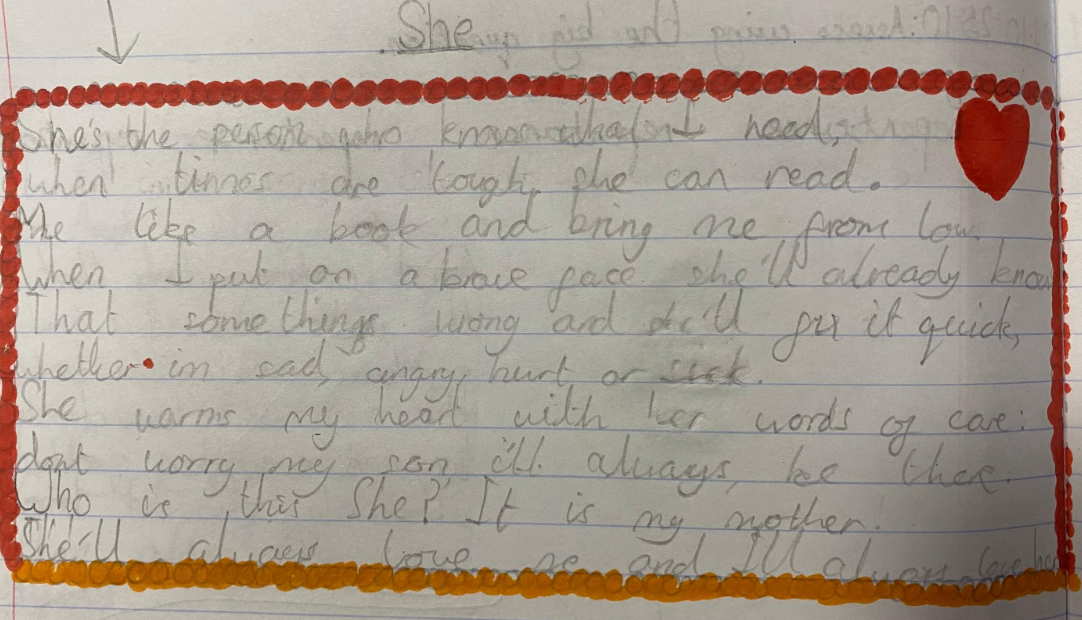 She
She's the person who knows what I need,
when times are tough, she can read.
Me like a book and bring me from low.
When I put on a brave face she'll already know
That somethings wrong and she'll fix it quick,
whether im sad, angry, hurt or sick.
She warms my heart with her words of care:
dont worry my son i'll always, be there.
Who is this She? It is my mother.
She'll always love me and I'll always love her